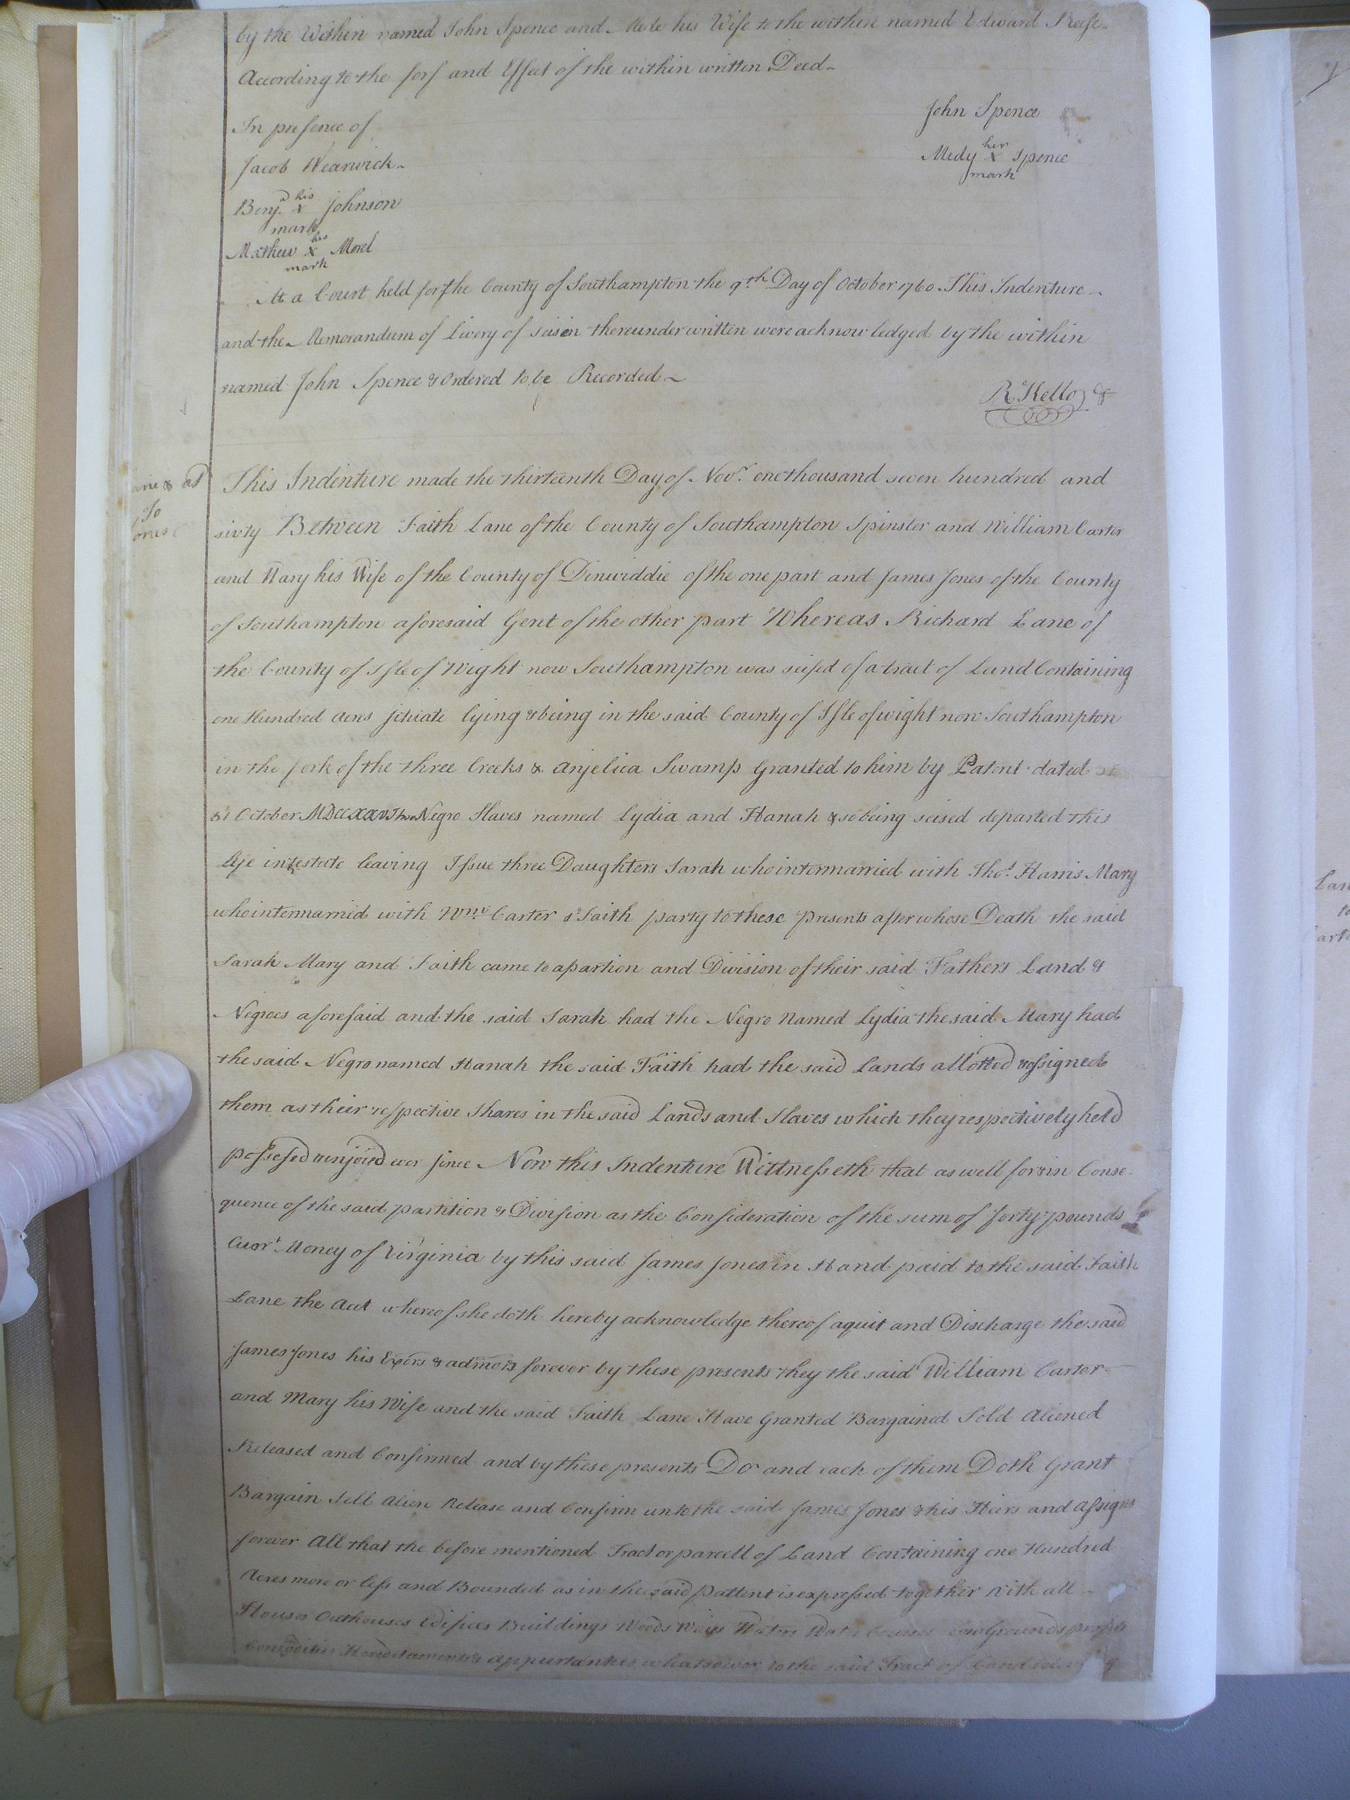 by the Within named John Spence and his Wife to the within named Edward
According to the forf and Effect of the within written Deed
In presence of
John Spence
Jacob Wearwick
Medy her X mark Spence
Benj.a his X mark Johnson
Mathew his X mark Morel
At a Court held for the County of Southampton the 9th Day of October 1760 This Indenture
and the Memorandum of Livery of seisin thereunder written were acknowledged by the within
named John Spence & Ordered to be Recorded
R. Kello
To
This Indenture made the thirteenth Day of Novr. one thousand seven hundred and
sixty Between Faith Lane of the County of Southampton Spinster and William Carter
and Mary his Wife of the County of Dinwiddie of the one part and James Jones of the County
of Southampton aforesaid Gent of the other part Whereas Richard Lane of
the County of Isle of Wight now Southampton was seised of a tract of Land Containing
one Hundred acres situate lying & being in the said County of Isle of wight now Southampton
in the fork of the three Creeks & Anjelica Swamp Granted to him by Patent dated
October Negro Slaves named Lydia and Hanah & so being seised departed this
life intestate leaving Issue three Daughters Sarah who intermarried with Thos. Harris Mary
who intermarried with Wm. Carter & Faith party to these presents after whose Death the said
Sarah Mary and Faith came to apartion and Division of their said Fathers Land &
Negroes aforesaid and the said Sarah had the Negro Named Lydia the said Mary had
the said Negro named Hanah the said Faith had the said Lands allotted & assigned
them as their respective Shares in the said Lands and Slaves which they respectively held
possesed & injoied ever since Now this Indenture Wittnesseth that as well for & in Conse
quence of the said partition & Division as the Consideration of the sum of forty pounds
Curr.t Money of Virginia by this said James Jones in Hand paid to the said Faith
Lane the whereof she doth hereby acknowledge thereof aquit and Discharge the said
James Jones his Exors & admors forever by these presents they the said William Carter
and Mary his Wife and the said Faith Lane Have Granted Bargained Sold Aliened
Released and Confirmed and by these presents Do and each of them Doth Grant
Bargain Sell Alien Release and Confirm unto the said James Jones & his Heirs and Assigns
forever All that the before mentioned Tract or parcell of Land Containing one Hundred
Acres more or less and Bounded as in the said pattent is expressed together with all
Houses Outhouses Edifices Buildings Woods Ways Waters Water Courses Grounds
Hereditaments & appurtankes whatsoever to the said Tract of Land